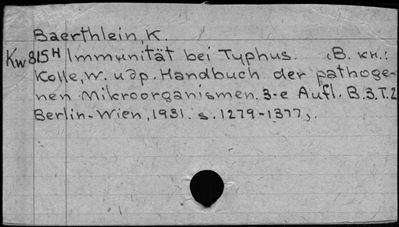 Baerthlein, K.
Kw815H Immunität bei Typhus. (В кн.:
Kolle, W. и др. Handbuch der pathoge-
nen Mikroorganismen. 3-e Aufl. B.3.T.2
Berlin-Wien, 1931. s. 1279-1377).